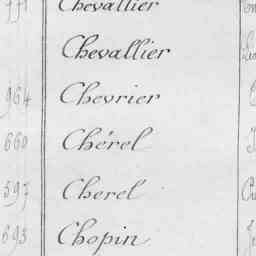 Chevallier
Chevallier
964 Chevrier
660 Chérel
597 Cherel
693 Chopin